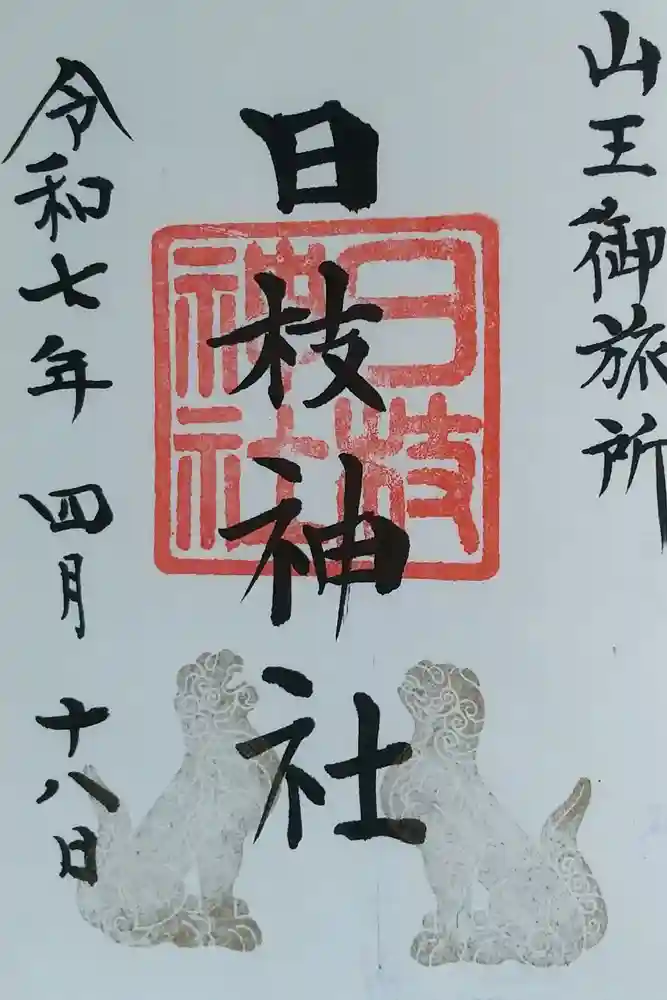 山王御旅所
日枝神社
日枝神社
令和七年四月十八日